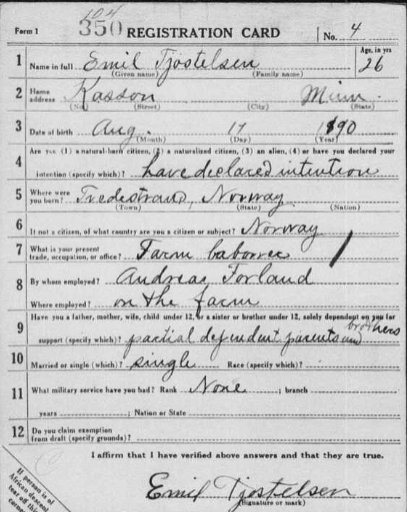 104
Form 1 350 REGISTRATION CARD No. 4
1 Name in full Emil Tjostelsen Age, in yrs 26
(Given name) (Family name)
2 Home address Kasson Minn.
(No.) (Street) (City) (State)
3 Date of birth Aug. 17 1890
(Month) (Day) (Year)
4 Are you (1) a natural-born citizen, (2) a naturalized citizen, (3) an alien, (4) or have you declared your
intention (specify which)? have declared intention
5 Where were you born? Tvedestrand, Norway
(Town) (State) (Nation)
6 If not a citizen, of what country are you a citizen or subject? Norway
7 What is your present trade, occupation, or office? Farm
8 By whom employed? Andreas Forland
Where employed? on the farm
9 Have you a father, mother, wife, child under 12, or a sister or brother under 12, solely dependent on you for
support (specify which)? partial dependent parents and brothers
10 Married or single (which)? single Race (specify which)?
11 What military service have you had? Rank None ; branch
years ; Nation or State
12 Do you claim exemption from draft (specify grounds)?
I affirm that I have verified above answers and that they are true.
If person is of African descent tear off this
Emil Tjostelsen
(Signature or mark)